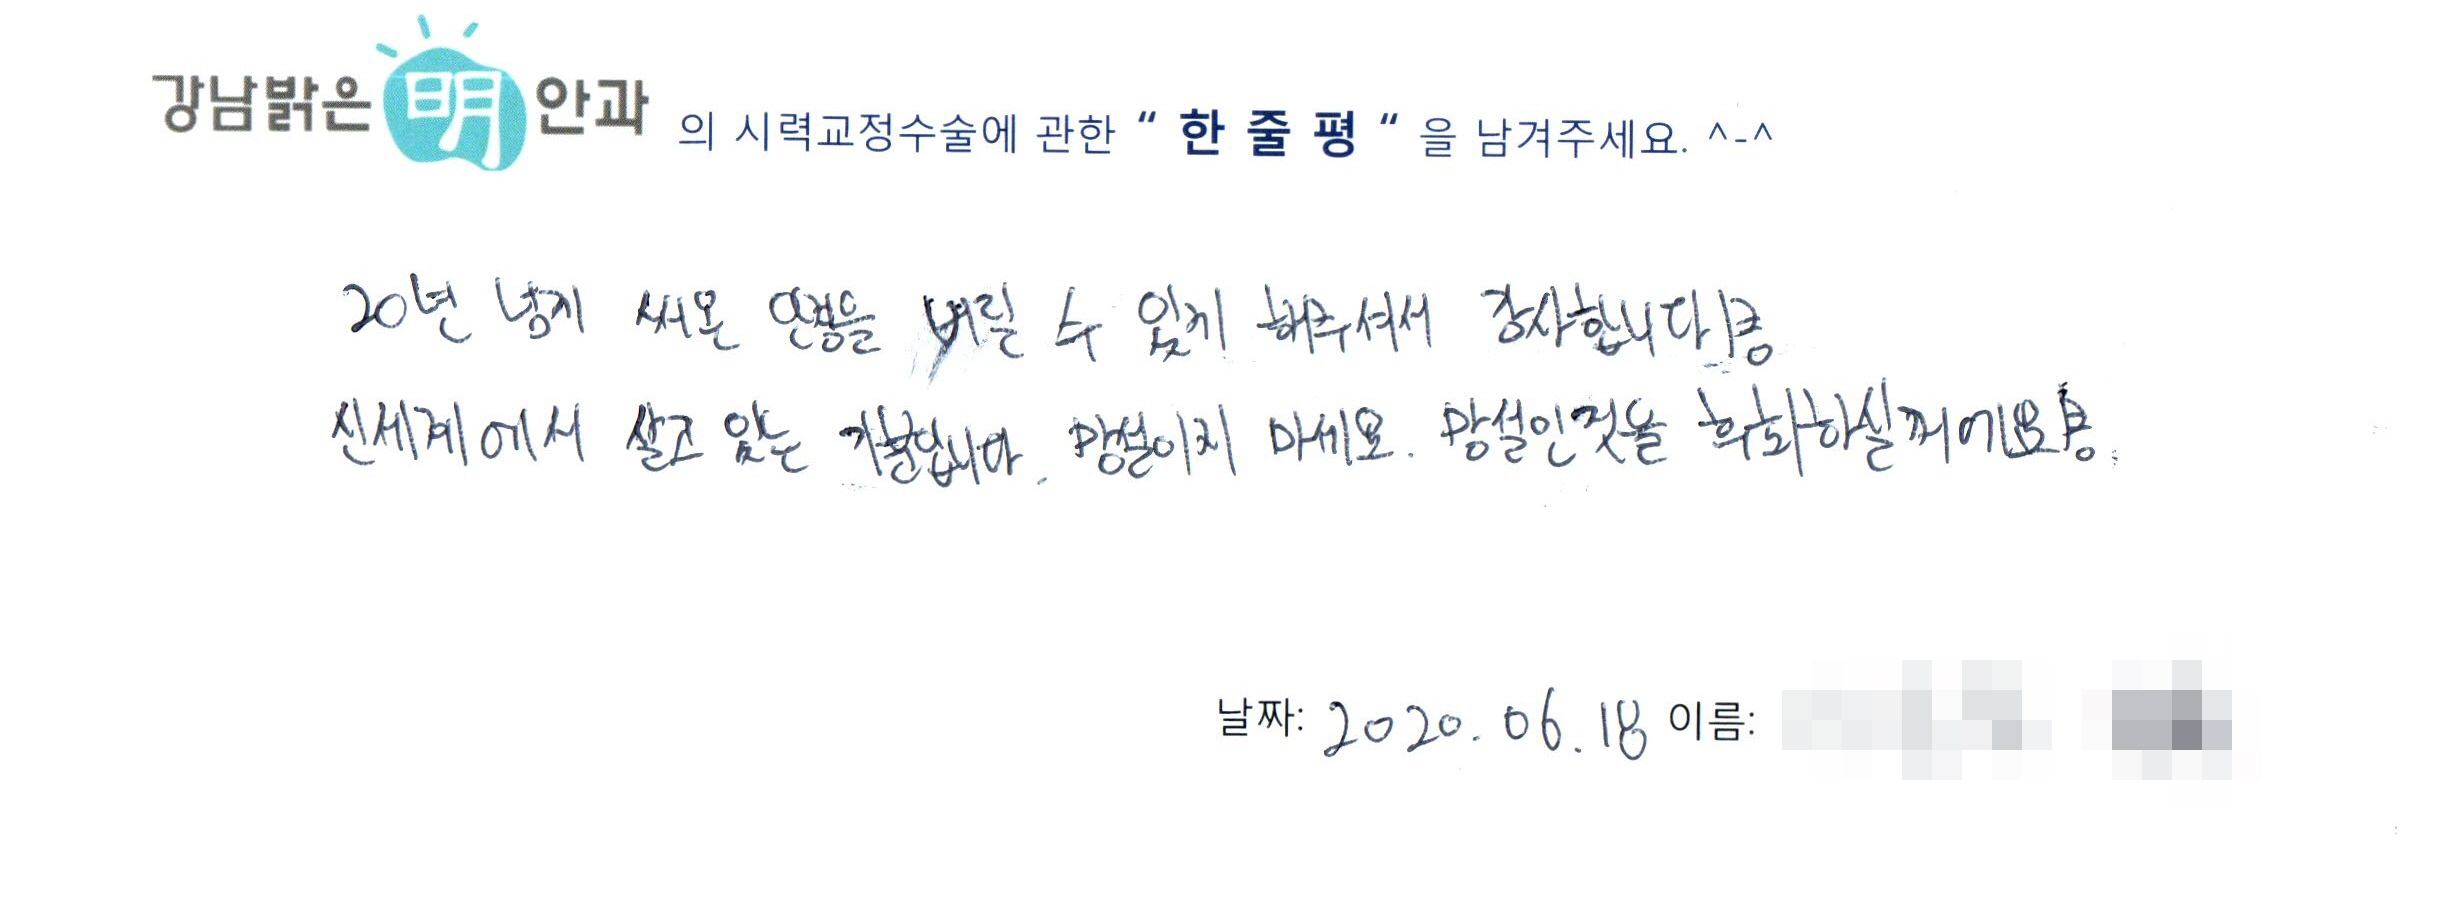 강남밝은 明 안과 의 시력교정수술에 관한 “ 한 줄 평 “ 을 남겨주세요. ^-^
20년 넘게 써온 안경을 버릴 수 있게 해주셔서 감사합니다!
신세계에서 살고 있는 기분입니다. 망설이지 마세요. 망설인것을 후회하실꺼에요
날짜: 2020. 06. 18 이름: